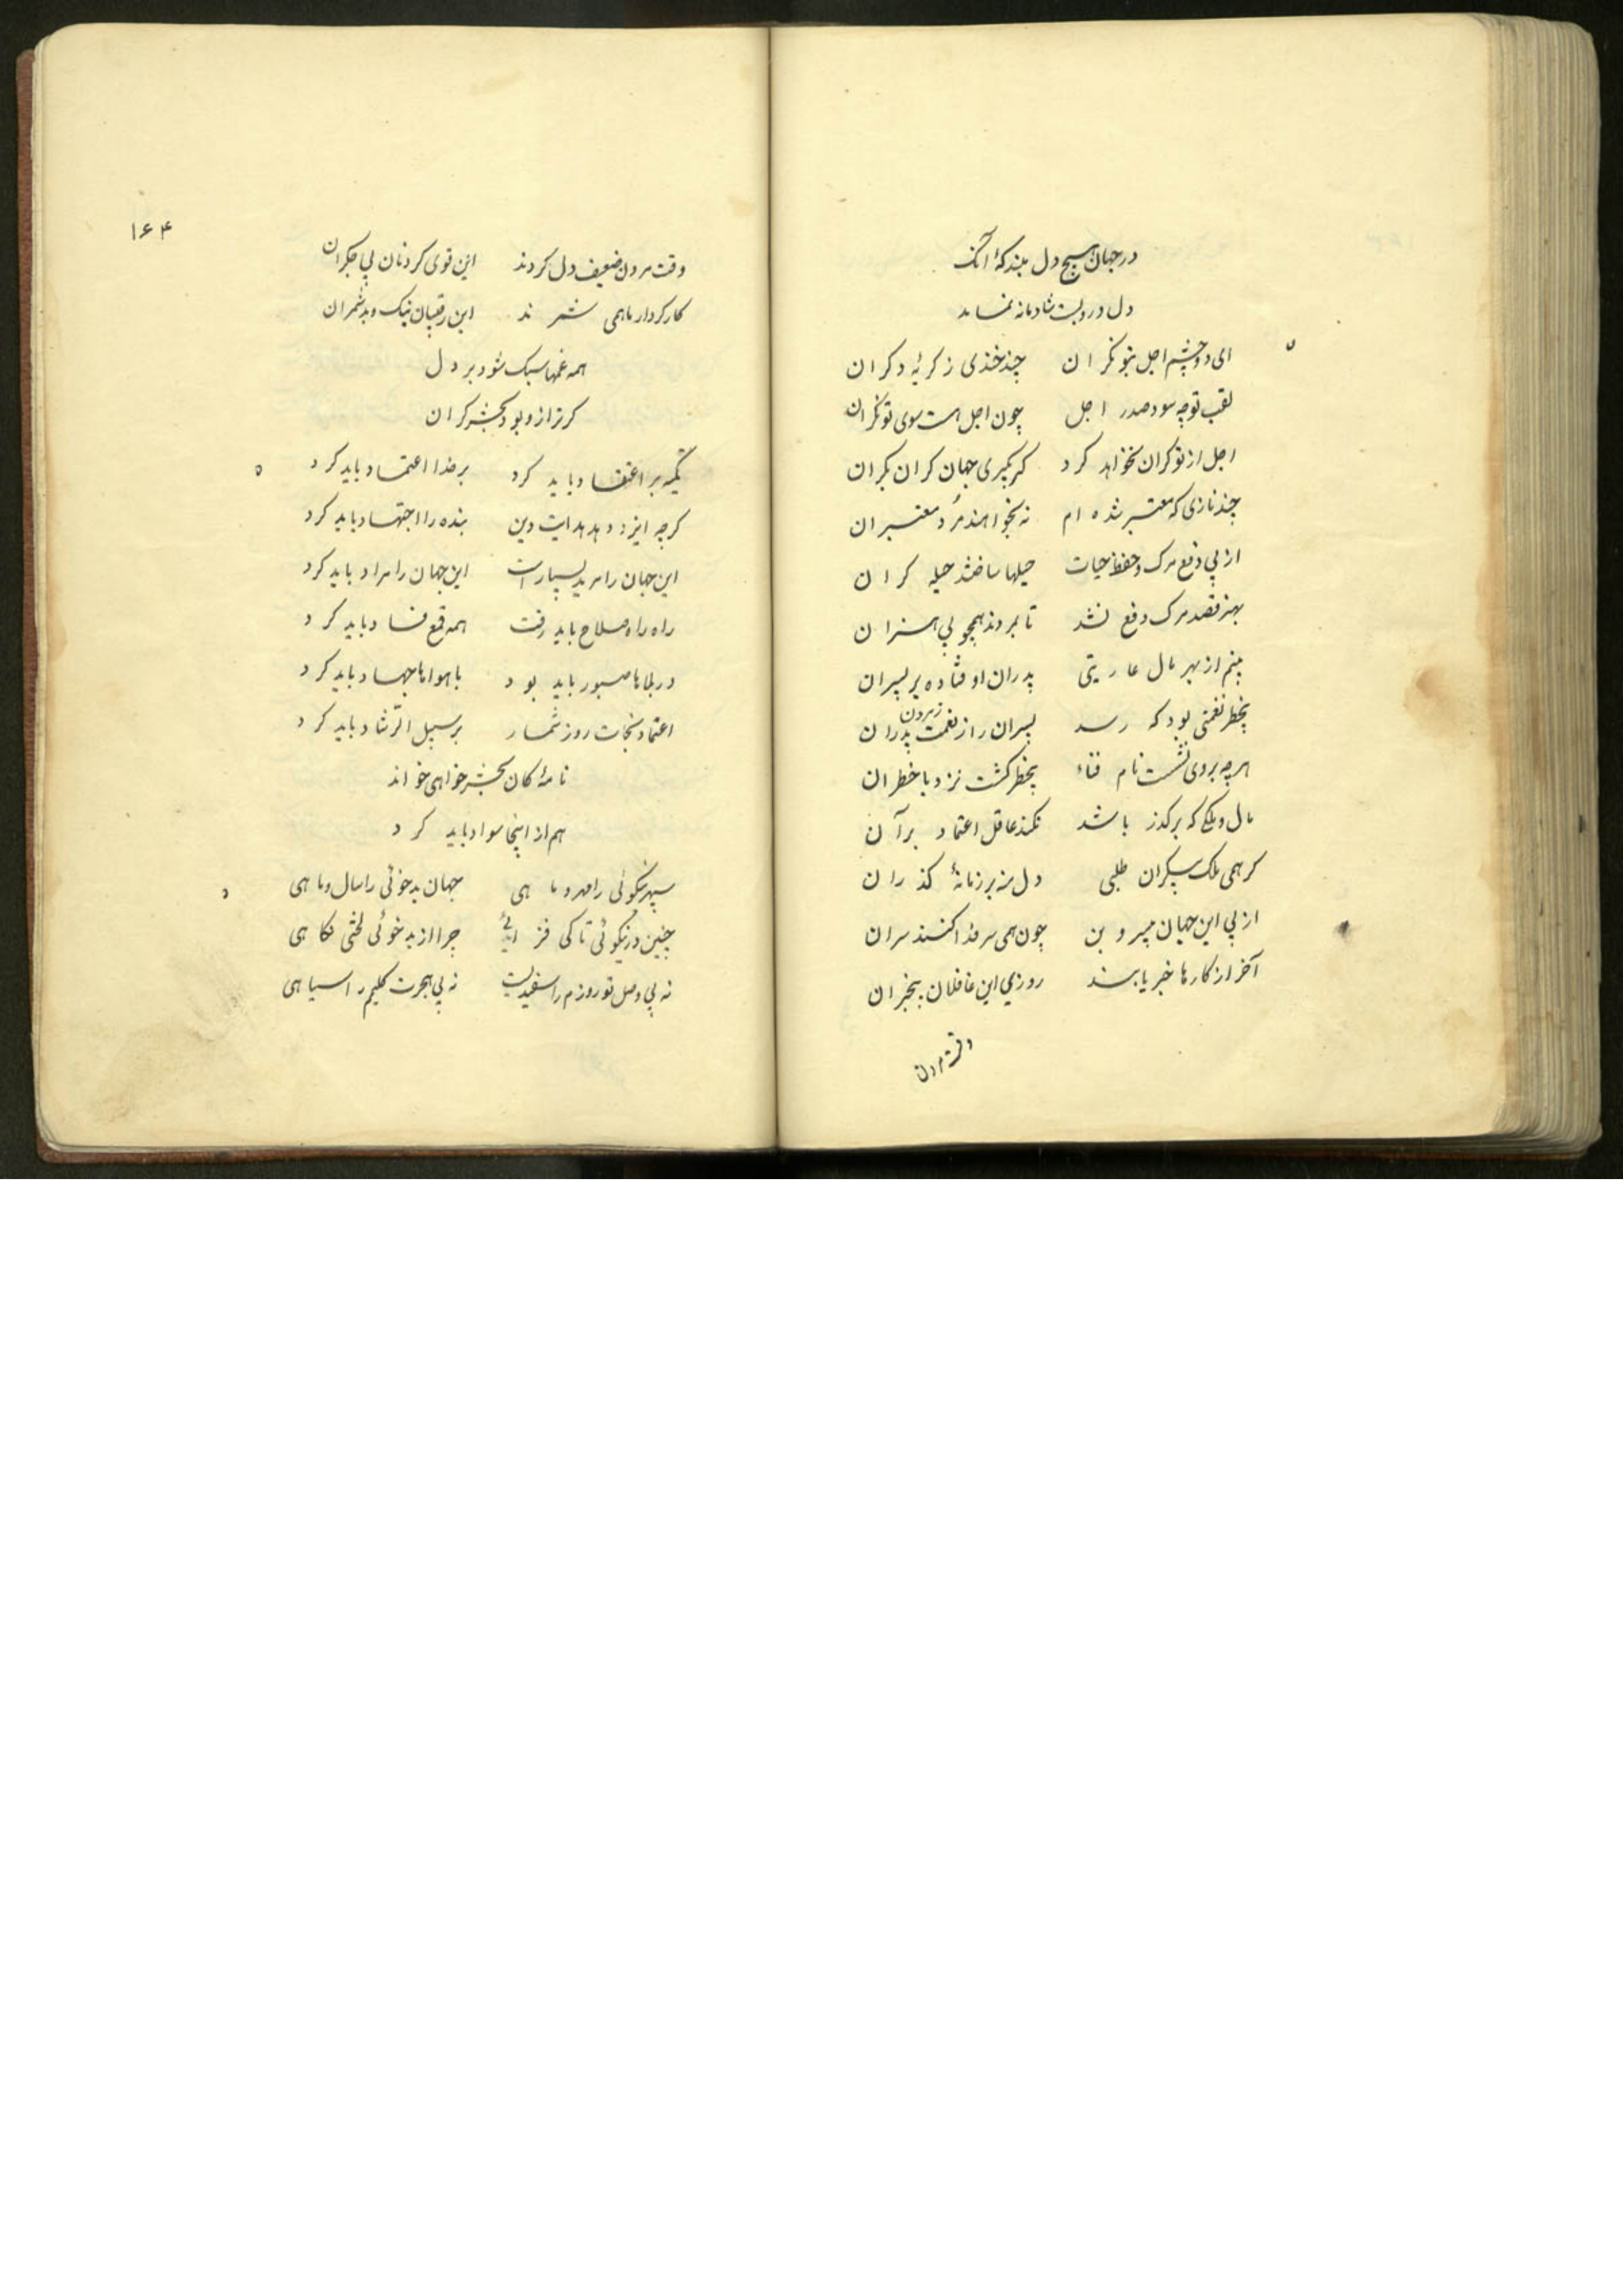 در جهان هیچ دل مبند که آنک
دل درو بست شادمانه نماند
ای دو چشم اجل بتو نکران چند خندی ز کریهٔ دکران
لقب تو چه سود صدر اجل چون اجل هست سوی تو نکران
اجل از تو کران نخواهد کرد کر بکیری جهان کران بکران
چند نازی که معتبر شده ام نه بخواهند مرد معتبران
از پی دفع مرک و حفظ حیات حیلها ساختند حیله کران
بهنر قصد مرک دفع نشد تا بمردند همچو بی هنران
بینم از بهر مال عاریتی پدران اوفتاده بر پسران
بخطر نعمتی بود که رسد پسران را ز نعمت پدران
زمردن
هرچه بروی نشست نام فناء بیخطر کشت نزد با خطران
مال و ملکی که بر کذر باشد نکند عاقل اعتماد برآن
کر همی ملک بیکران طلبی دل منه بر زمانهٔ کذران
از پی این جهان بی سر و بن چون همی سر فدا کنند سران
آخر از کارها خبر یابند روزی این غافلان بیخبران
وقت مردن
۱۶۴
وقت مردن ضعیف دل کردند این قوی کردنان بی جکران
کار کردار ما همی شمرند این رقیبان نیک و بد شمران
همه غمها سبک شود بر دل
کر ترازو بود بحشر کران
تکیه بر اعتقاد باید کرد بر خدا اعتماد باید کرد
کرچه ایزد دهد هدایت دین بنده را اجتهاد باید کرد
این جهان را مرید بسیارست این جهان را مراد باید کرد
راه راه صلاح باید رفت همه قمع فساد باید کرد
در بلاها صبور باید بود با هواها جهاد باید کرد
اعتماد نجات روز شمار بر سبیل الرشاد باید کرد
نامهٔ کان بحشر خواهی خواند
هم از اینجا سواد باید کرد
سپهر نیکوئی را مهر و ماهی جهان بدخوئی را سال و ماهی
چنین در نیکوئی تا کی فزائی چرا از بد خوئی لختی نکاهی
نه بی وصل تو روزم را سفیدیست نه بی هجرت کلیمم را سیاهی